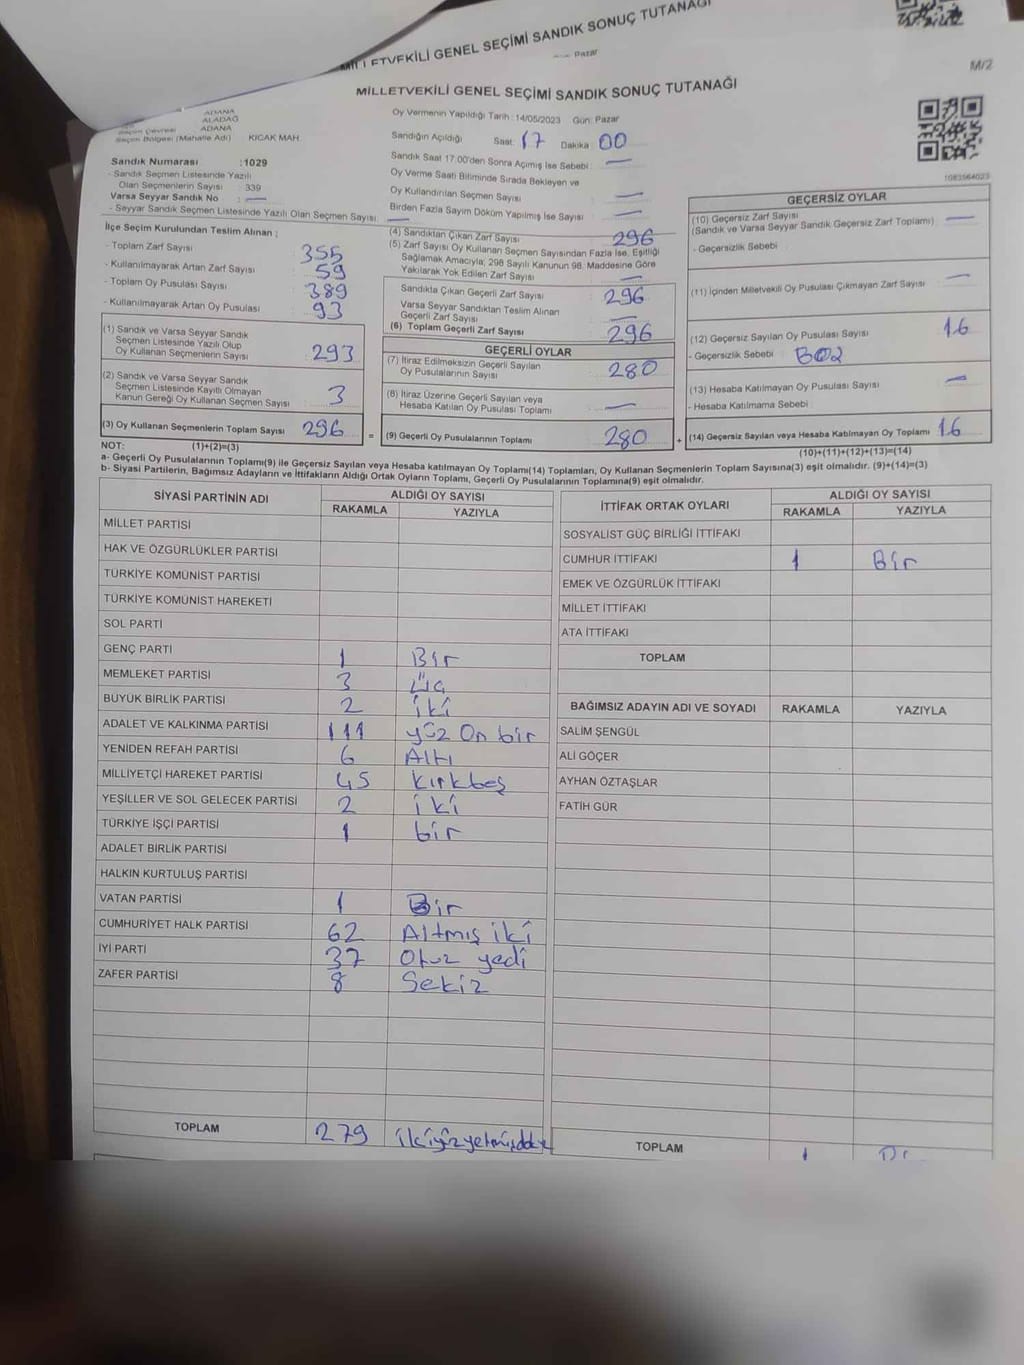 MİLLETVEKİLİ GENEL SEÇİMİ SANDIK SONUÇ TUTANAĞI
Pazar
M/2
MİLLETVEKİLİ GENEL SEÇİMİ SANDIK SONUÇ TUTANAĞI
ADANA
ALADAĞ
Seçim Çevresi ADANA
Seçim Bölgesi (Mahalle Adı) KICAK MAH.
Sandık Numarası :1029
- Sandık Seçmen Listesinde Yazılı
Olan Seçmenlerin Sayısı 339
Varsa Seyyar Sandık No —
- Seyyar Sandık Seçmen Listesinde Yazılı Olan Seçmen Sayısı —
İlçe Seçim Kurulundan Teslim Alınan ;
- Toplam Zarf Sayısı 355
- Kullanılmayarak Artan Zarf Sayısı 59
- Toplam Oy Pusulası Sayısı 389
- Kullanılmayarak Artan Oy Pusulası 93
(1) Sandık ve Varsa Seyyar Sandık
Seçmen Listesinde Yazılı Olup
Oy Kullanan Seçmenlerin Sayısı 293
(2) Sandık ve Varsa Seyyar Sandık
Seçmen Listesinde Kayıtlı Olmayan
Kanun Gereği Oy Kullanan Seçmen Sayısı 3
(3) Oy Kullanan Seçmenlerin Toplam Sayısı 296 =
Oy Vermenin Yapıldığı Tarih : 14/05/2023 Gün: Pazar
Sandığın Açıldığı Saat: 17 Dakika: 00
Sandık Saat 17.00'den Sonra Açımış İse Sebebi: —
Oy Verme Saati Bitiminde Sırada Bekleyen ve
Oy Kullandırılan Seçmen Sayısı —
Birden Fazla Sayım Döküm Yapılmış İse Sayısı —
(4) Sandıktan Çıkan Zarf Sayısı 296
(5) Zarf Sayısı Oy Kullanan Seçmen Sayısından Fazla İse, Eşitliği
Sağlamak Amacıyla; 298 Sayılı Kanunun 98. Maddesine Göre
Yakılarak Yok Edilen Zarf Sayısı —
Sandıkta Çıkan Geçerli Zarf Sayısı 296
Varsa Seyyar Sandıktan Teslim Alınan
Geçerli Zarf Sayısı —
(6) Toplam Geçerli Zarf Sayısı 296
GEÇERLİ OYLAR
(7) İtiraz Edilmeksizin Geçerli Sayılan
Oy Pusulalarının Sayısı 280
(8) İtiraz Üzerine Geçerli Sayılan veya
Hesaba Katılan Oy Pusulası Toplamı —
(9) Geçerli Oy Pusulalarının Toplamı 280 +
1083564023
GEÇERSİZ OYLAR
(10) Geçersiz Zarf Sayısı
(Sandık ve Varsa Seyyar Sandık Geçersiz Zarf Toplamı) —
- Geçersizlik Sebebi
(11) İçinden Milletvekili Oy Pusulası Çıkmayan Zarf Sayısı —
(12) Geçersiz Sayılan Oy Pusulası Sayısı 16
- Geçersizlik Sebebi
(13) Hesaba Katılmayan Oy Pusulası Sayısı —
- Hesaba Katılmama Sebebi
(14) Geçersiz Sayılan veya Hesaba Katılmayan Oy Toplamı 16
NOT: (1)+(2)=(3)
(10)+(11)+(12)+(13)=(14)
a- Geçerli Oy Pusulalarının Toplamı(9) ile Geçersiz Sayılan veya Hesaba katılmayan Oy Toplamı(14) Toplamları, Oy Kullanan Seçmenlerin Toplam Sayısına(3) eşit olmalıdır. (9)+(14)=(3)
b- Siyasi Partilerin, Bağımsız Adayların ve İttifakların Aldığı Ortak Oyların Toplamı, Geçerli Oy Pusulalarının Toplamına(9) eşit olmalıdır.
SİYASİ PARTİNİN ADI ALDIĞI OY SAYISI
RAKAMLA YAZIYLA
MİLLET PARTİSİ
HAK VE ÖZGÜRLÜKLER PARTİSİ
TÜRKİYE KOMÜNİST PARTİSİ
TÜRKİYE KOMÜNİST HAREKETİ
SOL PARTİ
GENÇ PARTİ 1 Bir
MEMLEKET PARTİSİ 3 Üç
BÜYÜK BİRLİK PARTİSİ 2 iki
ADALET VE KALKINMA PARTİSİ 111 yüz On bir
YENİDEN REFAH PARTİSİ 6 Altı
MİLLİYETÇİ HAREKET PARTİSİ 45 Kırkbeş
YEŞİLLER VE SOL GELECEK PARTİSİ 2 iki
TÜRKİYE İŞÇİ PARTİSİ 1 bir
ADALET BİRLİK PARTİSİ
HALKIN KURTULUŞ PARTİSİ
VATAN PARTİSİ 1 Bir
CUMHURİYET HALK PARTİSİ 62 Altmış iki
İYİ PARTİ 37 Otuz yedi
ZAFER PARTİSİ 8 Sekiz
TOPLAM 279
İTTİFAK ORTAK OYLARI ALDIĞI OY SAYISI
RAKAMLA YAZIYLA
SOSYALİST GÜÇ BİRLİĞİ İTTİFAKI
CUMHUR İTTİFAKI 1 Bir
EMEK VE ÖZGÜRLÜK İTTİFAKI
MİLLET İTTİFAKI
ATA İTTİFAKI
TOPLAM
BAĞIMSIZ ADAYIN ADI VE SOYADI RAKAMLA YAZIYLA
SALİM ŞENGÜL
ALİ GÖÇER
AYHAN ÖZTAŞLAR
FATİH GÜR
TOPLAM 1